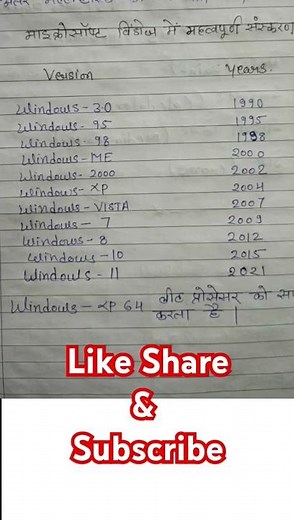 माइक्रोसॉफ्ट विंडोज में महत्वपूर्ण संस्करण
Version Years.
Windows - 3.0 1990
Windows - 95 1995
Windows - 98 1998
Windows - ME 2000
Windows - 2000 2002
Windows - XP 2004
Windows - VISTA 2007
Windows - 7 2009
Windows - 8 2012
Windows - 10 2015
Windows - 11 2021
Windows - XP 64 बीट प्रोसेसर को
करता है |
Like Share
&
Subscribe